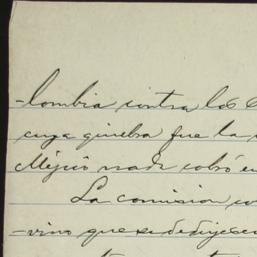 -lombia contra los
cuya ginebra fue la
Méjico nada cobró en
La comision
-vino que se dedujesen